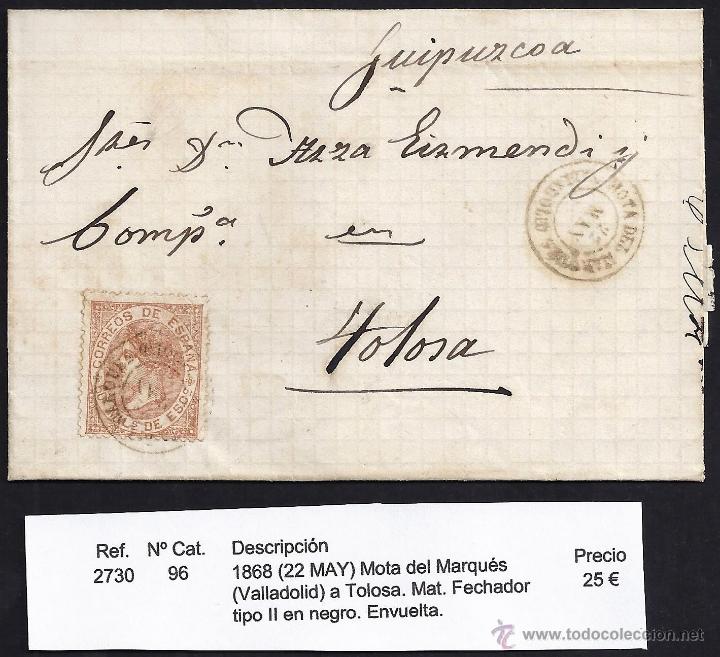 Guipuzcoa
Sres Dn Azza Eizmendi y
Compª. en
Tolosa
MOTA DEL
MAY
CORREOS DE ESPAÑA
MILS DE ESCO
Ref. Nº Cat. Descripción Precio
2730 96 1868 (22 MAY) Mota del Marqués 25 €
(Valladolid) a Tolosa. Mat. Fechador
tipo II en negro. Envuelta.
www.todocoleccion.net